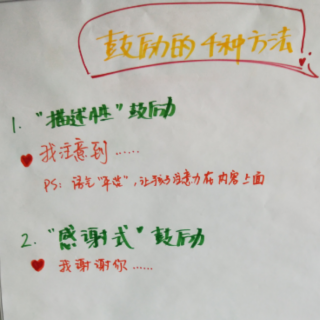 鼓励的4种方法
1. “描述性”鼓励
我注意到……
PS: 语气“平淡”, 让孩子注意力在内容上面
2. “感谢式”鼓励
我谢谢你……